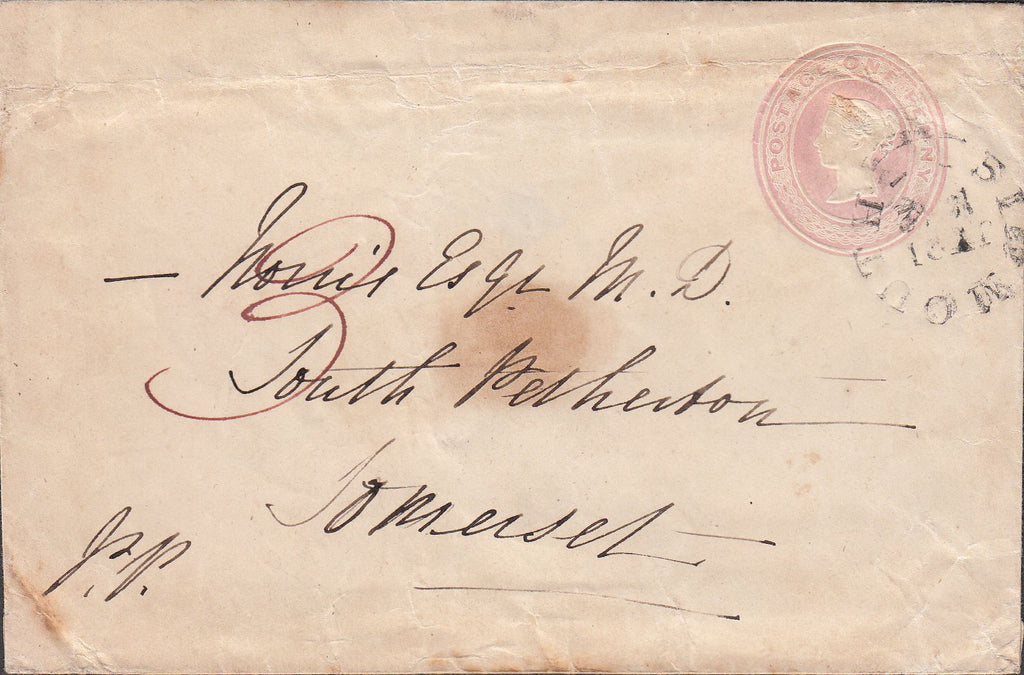 POSTAGE ONE PENNY
SIDMOUTH
— Norris Esqr M. D.
3
South Petherton
Somerset
P.P.